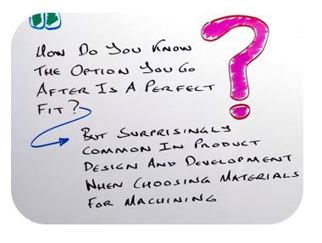 How Do You Know
The Option You Go
After Is A Perfect
Fit?
But Surprisingly
Common In Product
Design And Development
When Choosing Materials
For Machining